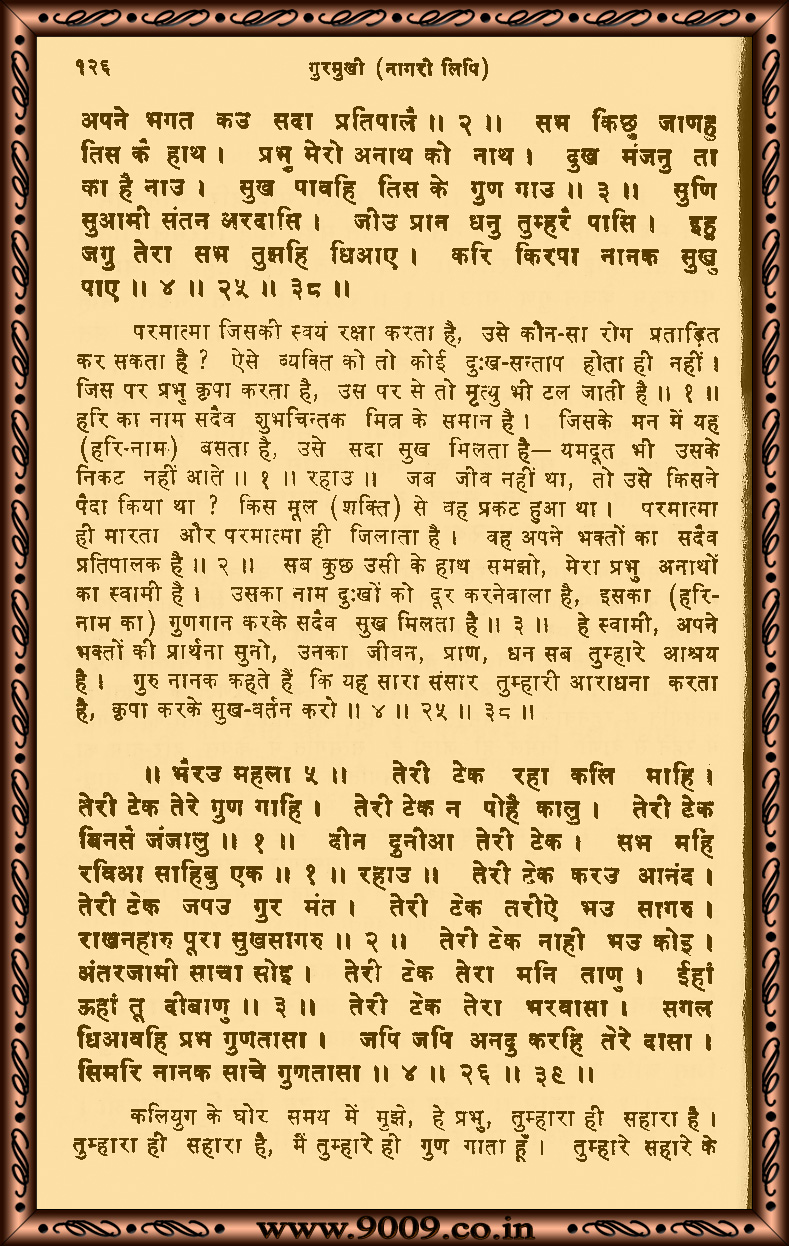 १२६ गुरमुखी (नागरी लिपि)
अपने भगत कउ सदा प्रतिपालै ॥ २ ॥ सभ किछु जाणहु
तिस कै हाथ । प्रभु मेरो अनाथ को नाथ । दुख भंजनु ता
का है नाउ । सुख पावहि तिस के गुण गाउ ॥ ३ ॥ सुणि
सुआमी संतन अरदासि । जीउ प्रान धनु तुम्हरै पासि । इहु
जगु तेरा सभ तुझहि धिआए । करि किरपा नानक सुखु
पाए ॥ ४ ॥ २५ ॥ ३८ ॥
परमात्मा जिसकी स्वयं रक्षा करता है, उसे कौन-सा रोग प्रताड़ित
कर सकता है ? ऐसे व्यक्ति को तो कोई दुःख-सन्ताप होता ही नहीं ।
जिस पर प्रभु कृपा करता है, उस पर से तो मृत्यु भी टल जाती है ॥ १ ॥
हरि का नाम सदैव शुभचिन्तक मित्र के समान है । जिसके मन में यह
(हरि-नाम) बसता है, उसे सदा सुख मिलता है— यमदूत भी उसके
निकट नहीं आते ॥ १ ॥ रहाउ ॥ जब जीव नहीं था, तो उसे किसने
पैदा किया था ? किस मूल (शक्ति) से वह प्रकट हुआ था । परमात्मा
ही मारता और परमात्मा ही जिलाता है । वह अपने भक्तों का सदैव
प्रतिपालक है ॥ २ ॥ सब कुछ उसी के हाथ समझो, मेरा प्रभु अनाथों
का स्वामी है । उसका नाम दुःखों को दूर करनेवाला है, इसका (हरि-
नाम का) गुणगान करके सदैव सुख मिलता है ॥ ३ ॥ हे स्वामी, अपने
भक्तों की प्रार्थना सुनो, उनका जीवन, प्राण, धन सब तुम्हारे आश्रय
है । गुरु नानक कहते हैं कि यह सारा संसार तुम्हारी आराधना करता
है, कृपा करके सुख-वर्तन करो ॥ ४ ॥ २५ ॥ ३८ ॥
॥ भैरउ महला ५ ॥ तेरी टेक रहा कलि माहि ।
तेरी टेक तेरे गुण गाहि । तेरी टेक न पोहै कालु । तेरी टेक
बिनसै जंजालु ॥ १ ॥ दीन दुनीआ तेरी टेक । सभ महि
रविआ साहिबु एक ॥ १ ॥ रहाउ ॥ तेरी टेक करउ आनंद ।
तेरी टेक जपउ गुर मंत । तेरी टेक तरीऐ भउ सागरु ।
राखनहारु पूरा सुखसागरु ॥ २ ॥ तेरी टेक नाही भउ कोइ ।
अंतरजामी साचा सोइ । तेरी टेक तेरा मनि ताणु । ईहां
ऊहां तू दीबाणु ॥ ३ ॥ तेरी टेक तेरा भरवासा । सगल
धिआवहि प्रभ गुणतासा । जपि जपि अनदु करहि तेरे दासा ।
सिमरि नानक साचे गुणतासा ॥ ४ ॥ २६ ॥ ३९ ॥
कलियुग के घोर समय में मुझे, हे प्रभु, तुम्हारा ही सहारा है ।
तुम्हारा ही सहारा है, मैं तुम्हारे ही गुण गाता हूँ । तुम्हारे सहारे के
www.9009.co.in